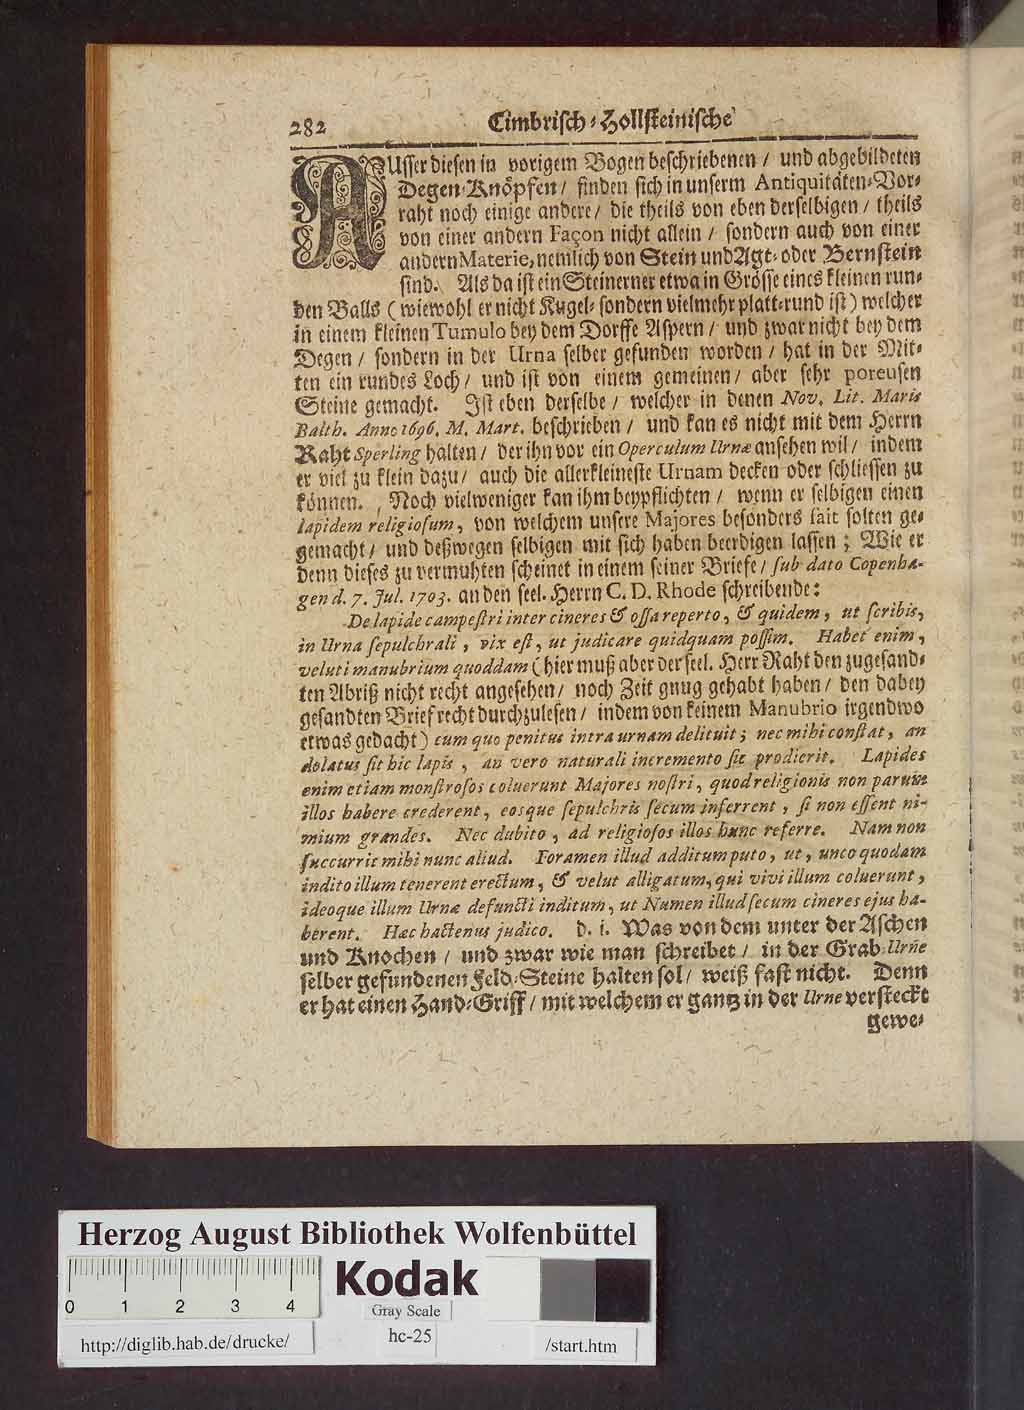 282 Cimbrisch-Hollsteinische
AUsser diesen in vorigem Bogen beschriebenen / und abgebildeten
Degen-Knöpfen / finden sich in unserm Antiquitäten-Vor-
raht noch einige andere / die theils von eben derselbigen / theils
von einer andern Façon nicht allein / sondern auch von einer
andern Materie, nemlich von Stein und Agt- oder Bernstein
sind. Als da ist ein Steinerner etwa in Grösse eines kleinen run-
den Balls (wiewohl er nicht Kugel- sondern vielmehr platt-rund ist) welcher
in einem kleinen Tumulo bey dem Dorffe Aspern / und zwar nicht bey dem
Degen / sondern in der Urna selber gefunden worden / hat in der Mit-
ten ein rundes Loch / und ist von einem gemeinen / aber sehr poreusen
Steine gemacht. Ist eben derselbe / welcher in denen Nov. Lit. Maris
Balth. Anno 1696. M. Mart. beschrieben / und kan es nicht mit dem Herrn
Raht Sperling halten / der ihn vor ein Operculum Urnæ ansehen wil / indem
er viel zu klein dazu / auch die allerkleineste Urnam decken oder schliessen zu
können. Noch vielweniger kan ihm beypflichten / wenn er selbigen einen
lapidem religiosum, von welchem unsere Majores besonders fait solten ge-
gemacht / und deßwegen selbigen mit sich haben beerdigen lassen; Wie er
denn dieses zu vermuhten scheinet in einem seiner Briefe / sub dato Copenha-
gen d. 7. Jul. 1703. an den seel. Herrn C. D. Rhode schreibende:
De lapide campestri inter cineres & ossa reperto, & quidem, ut scribis,
in Urna sepulchrali, vix est, ut judicare quidquam possim. Habet enim,
veluti manubrium quoddam (hier muß aber der seel. Herr Raht den zugesand-
ten Abriß nicht recht angesehen / noch Zeit gnug gehabt haben / den dabey
gesandten Brief recht durchzulesen / indem von keinem Manubrio irgendwo
etwas gedacht) cum quo penitus intra urnam delituit; nec mihi constat, an
dolatus sit hic lapis, an vero naturali incremento sic prodierit. Lapides
enim etiam monstrosos coluerunt Majores nostri, quod religionis non parum
illos habere crederent, eosque sepulchris secum inferrent, si non essent ni-
mium grandes. Nec dubito, ad religiosos illos hunc referre. Nam non
succurrit mihi nunc aliud. Foramen illud additum puto, ut, unco quodam
indito illum tenerent erectum, & velut alligatum, qui vivi illum coluerunt,
ideoque illum Urnæ defuncti inditum, ut Numen illud secum cineres ejus ha-
berent. Hæc hactenus judico. d. i. Was von dem unter der Aschen
und Knochen / und zwar wie man schreibet / in der Grab-Urne
selber gefundenen Feld-Steine halten sol / weiß fast nicht. Denn
er hat einen Hand-Griff / mit welchem er gantz in der Urne versteckt
gewe-
Herzog August Bibliothek Wolfenbüttel
0 1 2 3 4
Kodak
Gray Scale
http://diglib.hab.de/drucke/ hc-25 /start.htm